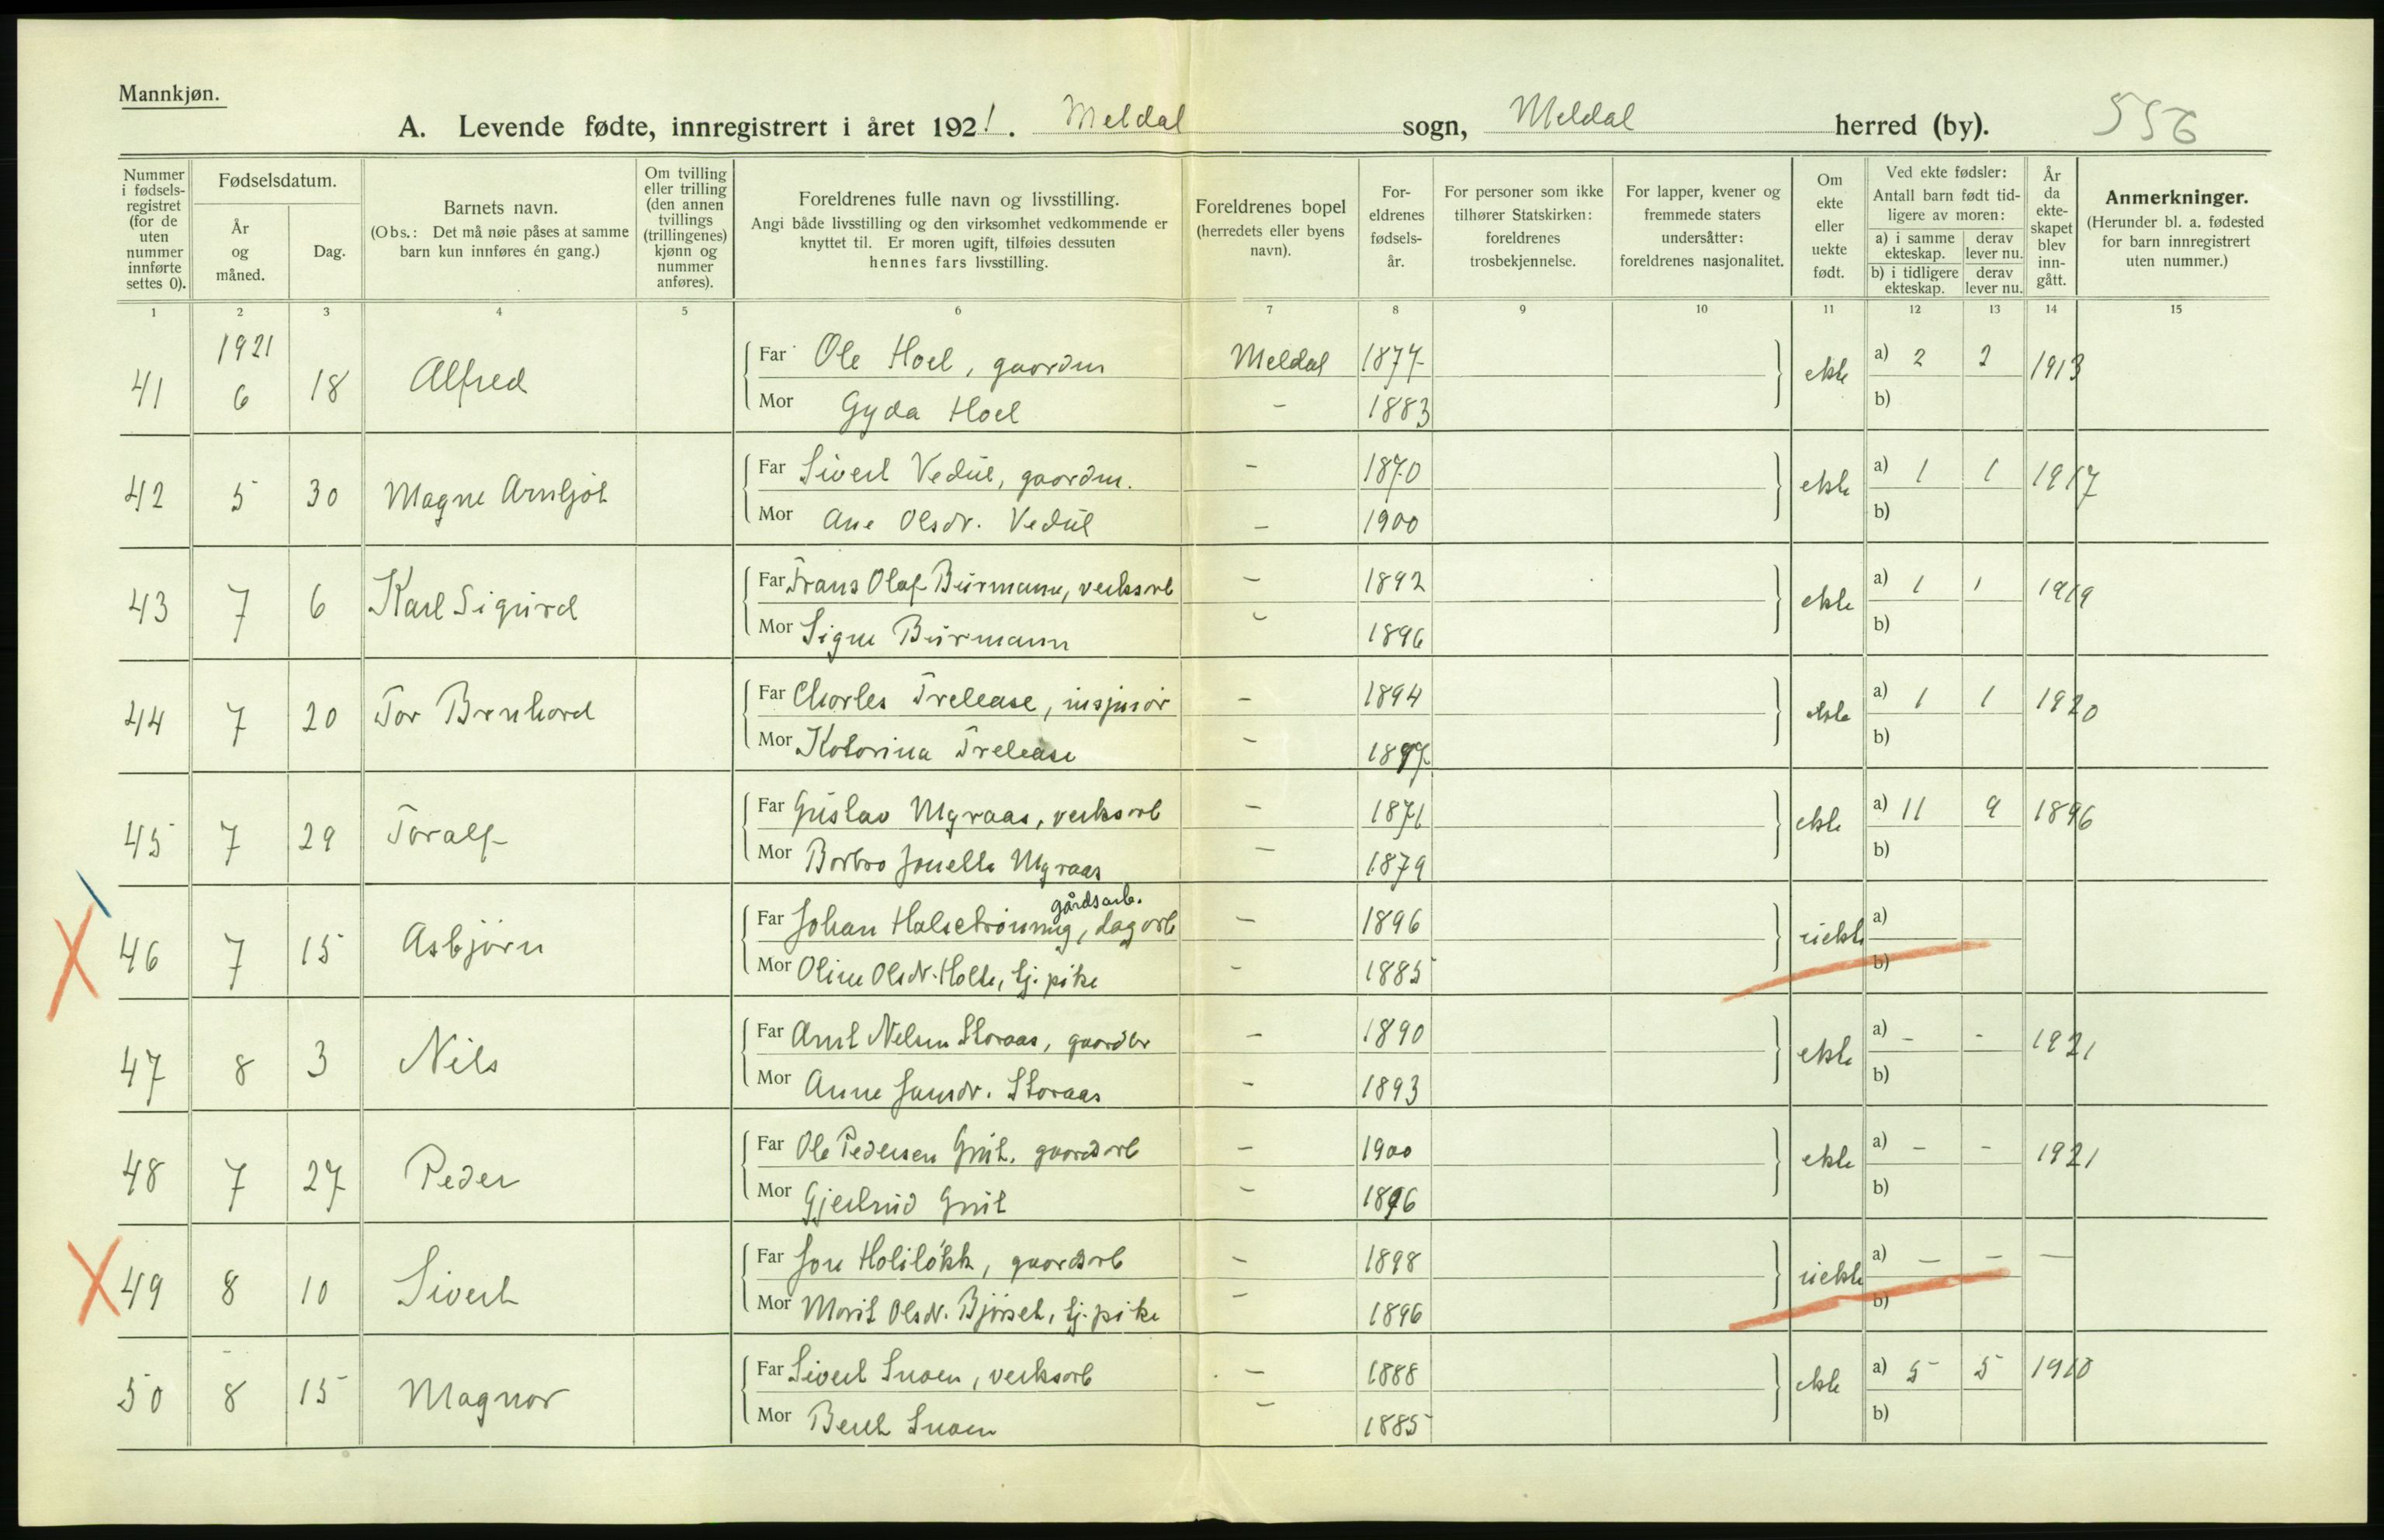 Mannkjøn.
A. Levende fødte, innregistrert i året 1921. Meldal sogn, Meldal herred (by). 556
Nummer i fødselsregistret (for de uten nummer innførte settes 0).
Fødselsdatum.
År og måned.
Dag.
Barnets navn.
(Obs.: Det må nøie påses at samme barn kun innføres én gang.)
Om tvilling eller trilling (den annen tvillings (trillingenes) kjønn og nummer anføres).
Foreldrenes fulle navn og livsstilling.
Angi både livsstilling og den virksomhet vedkommende er knyttet til. Er moren ugift, tilføies dessuten hennes fars livsstilling.
Foreldrenes bopel (herredets eller byens navn).
Foreldrenes fødselsår.
For personer som ikke tilhører Statskirken: foreldrenes trosbekjennelse.
For lapper, kvener og fremmede staters undersåtter: foreldrenes nasjonalitet.
Om ekte eller uekte født.
Ved ekte fødsler:
Antall barn født tidligere av moren:
a) i samme ekteskap. derav lever nu.
b) i tidligere ekteskap. derav lever nu.
År da ekteskapet blev inngått.
Anmerkninger.
(Herunder bl. a. fødested for barn innregistrert uten nummer.)
1 2 3 4 5 6 7 8 9 10 11 12 13 14 15
1921
41 6 18 Alfred Far Ole Hoel, gaardm Meldal 1877 ekte a) 2 2 1913
Mor Gyda Hoel – 1883 b)
42 5 30 Magne Arnljot Far Sivert Vedul, gaardm. – 1870 ekte a) 1 1 1917
Mor Ane Olsdr. Vedul – 1900 b)
43 7 6 Karl Sigurd Far Frans Olaf Burmann, verksarb – 1892 ekte a) 1 1 1919
Mor Signe Burmann – 1896 b)
44 7 20 Tor Bernhard Far Charles Trelease, insjenør – 1894 ekte a) 1 1 1920
Mor Katarina Trelease – 1897 b)
45 7 29 Toralf Far Gustav Mgraas, verksarb – 1871 ekte a) 11 9 1896
Mor Barbro Jonette Mgraas – 1879 b)
gårdsarb.
46 7 15 Asbjørn Far Johan Halsetrønning, dagarb – 1896 uekte a)
Mor Oline Olsdr. Holte, tj. pike – 1885 b)
47 8 3 Nils Far Arnt Nelsen Storaas, gaardbr – 1890 ekte a) – – 1921
Mor Anne Jensdr. Storaas – 1893 b)
48 7 27 Peder Far Ole Pedersen Grut, gaardarb – 1900 ekte a) – – 1921
Mor Gjertrud Grut – 1896 b)
49 8 10 Sivert Far Jon Holiløkk, gaardsarb – 1898 uekte a) – – –
Mor Marit Olsdr. Bjørset, tj. pike – 1896 b)
50 8 15 Magnar Far Sivert Snoen, verksarb – 1888 ekte a) 5 5 1910
Mor Beret Snoen – 1885 b)